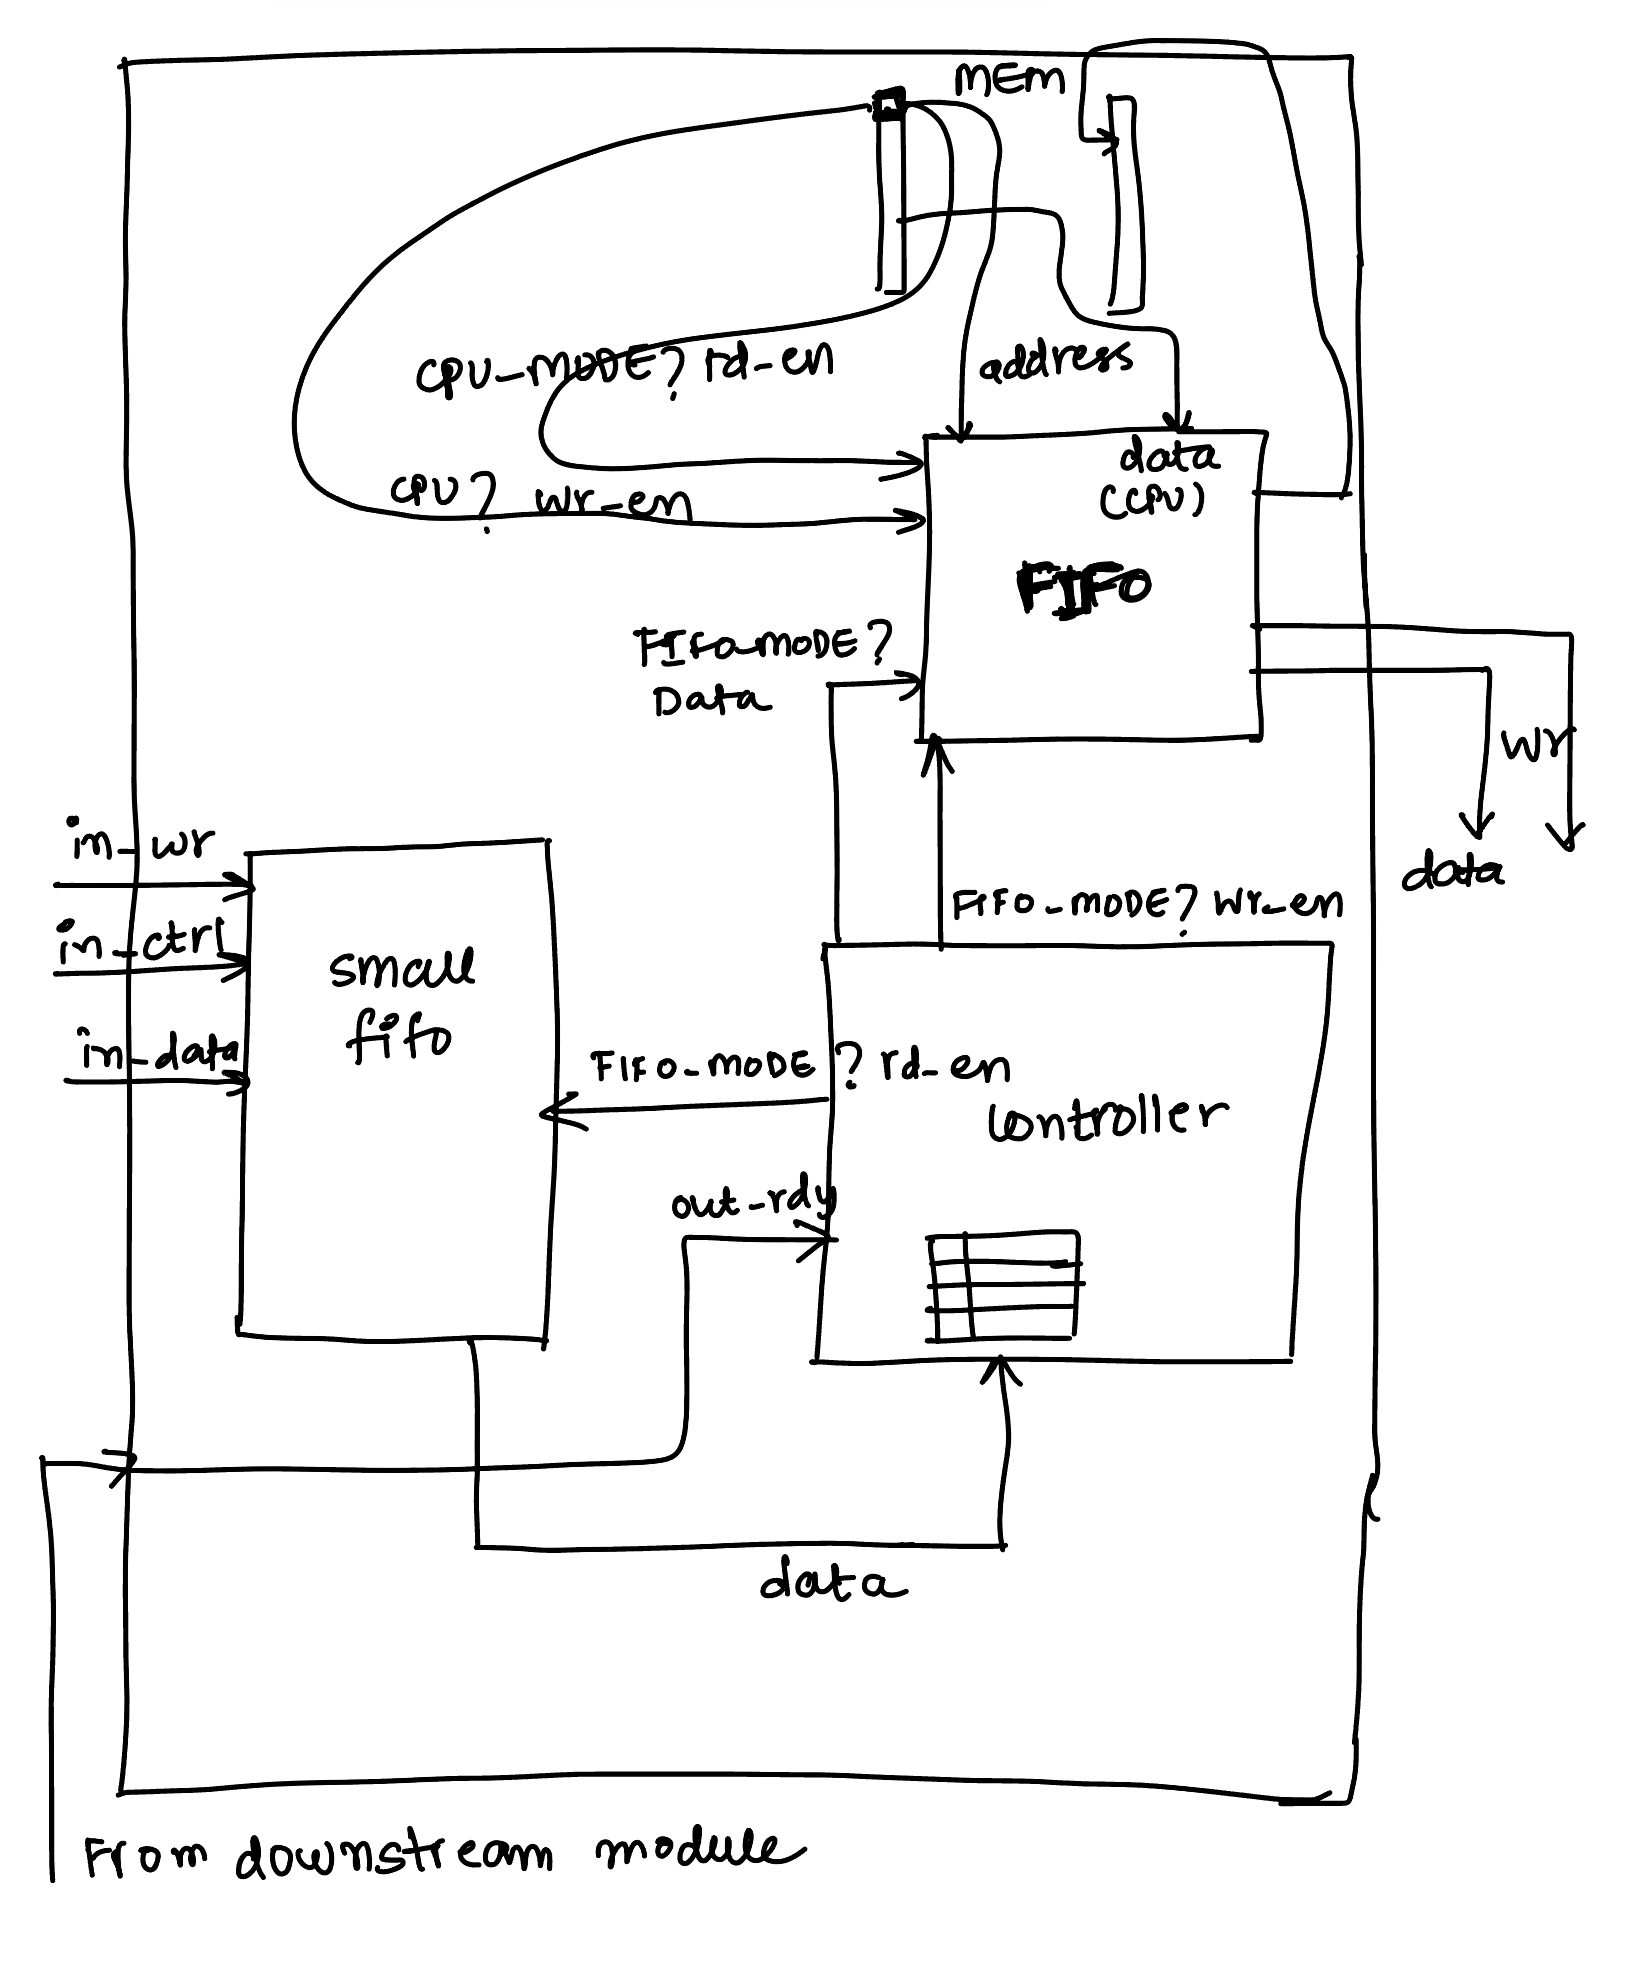 MEM
CPU_MODE? rd_en
address
CPU? wr_en
data
(CPU)
FIFO
FIFO_MODE?
Data
wr
data
in_wr
in_ctrl
in_data
small
fifo
FIFO_MODE? wr_en
FIFO_MODE? rd_en
controller
out_rdy
data
From downstream module